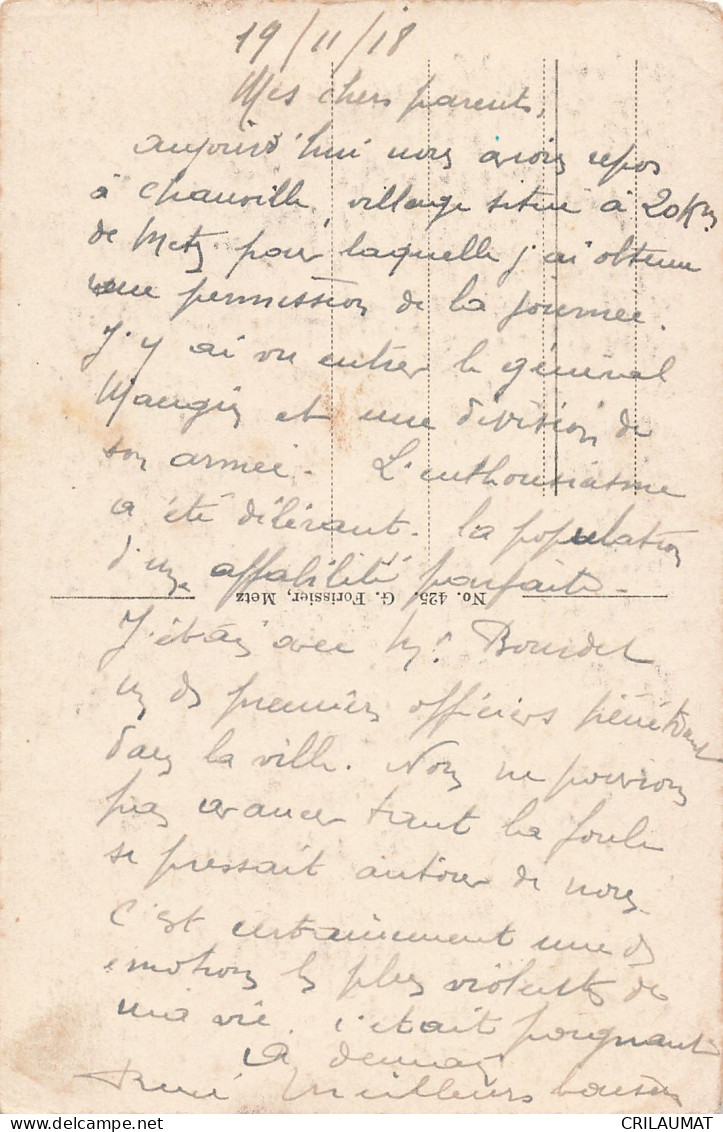 19/11/18
Mes chers parents,
aujourd'hui nous avons repos
à Chanville, village situé à 20 Km
de Metz pour laquelle j'ai obtenu
une permission de la journée.
J'y ai vu entrer le général
Mangin et une division de
son armée. L'enthousiasme
a été délirant. la population
d'une affabilité parfaite.
No. 425. G. Forissier, Metz
J'étais avec Mr. Bourdet
un des premiers officiers pénétrant
dans la ville. Nous ne pouvions
pas avancer tant la foule
se pressait autour de nous.
C'est certainement une des
émotions les plus violentes de
ma vie. c'était poignant
A demain
René Meilleurs baisers
CRILAUMAT